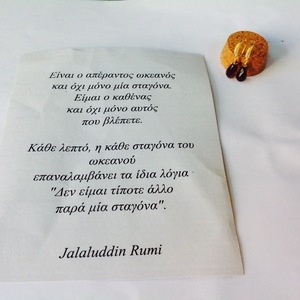 Είναι ο απέραντος ωκεανός
και όχι μόνο μία σταγόνα.
Είμαι ο καθένας
και όχι μόνο αυτός
που βλέπετε.
Κάθε λεπτό, η κάθε σταγόνα του
ωκεανού
επαναλαμβάνει τα ίδια λόγια
"Δεν είμαι τίποτε άλλο
παρά μία σταγόνα".
Jalaluddin Rumi